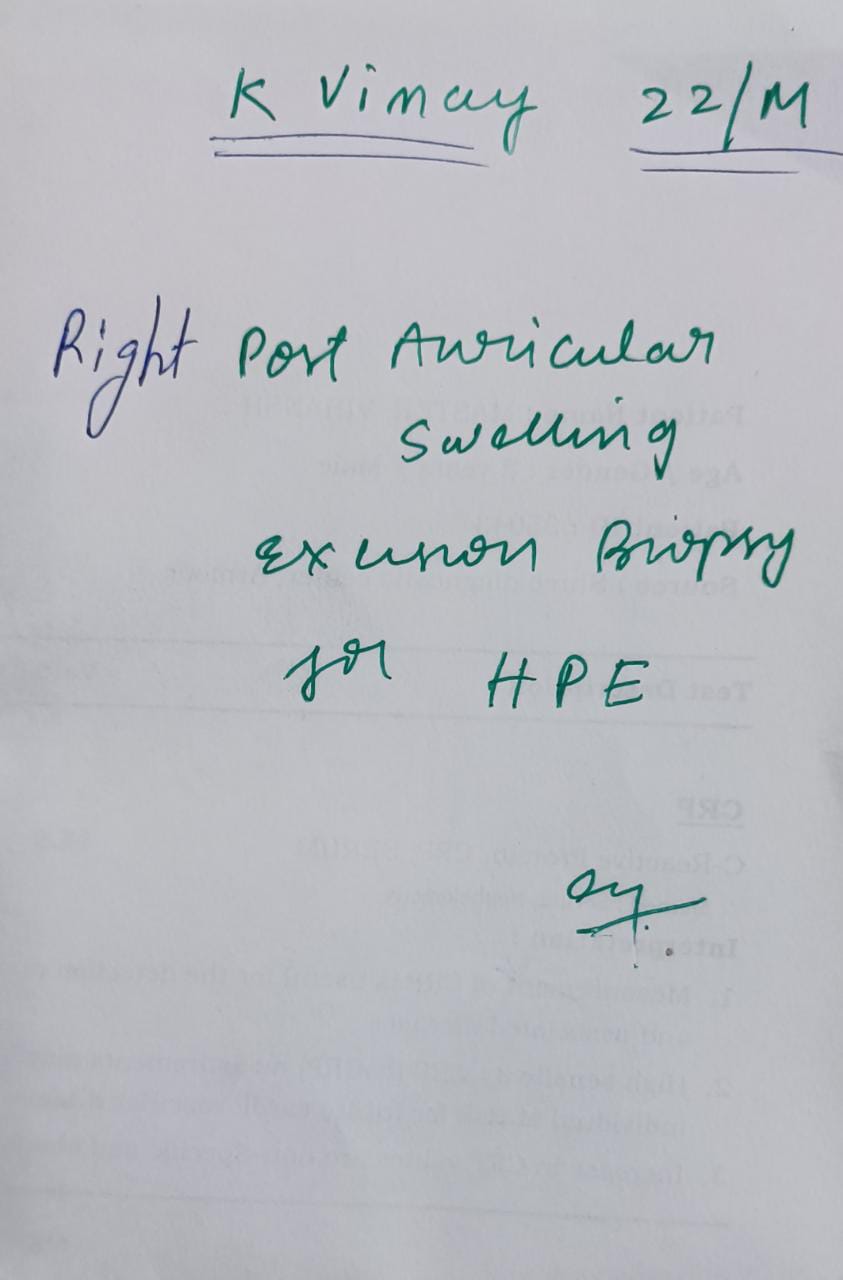 K Vimay 22/M
Right Post Auricular
Swelling
Excision Biopsy
for HPE